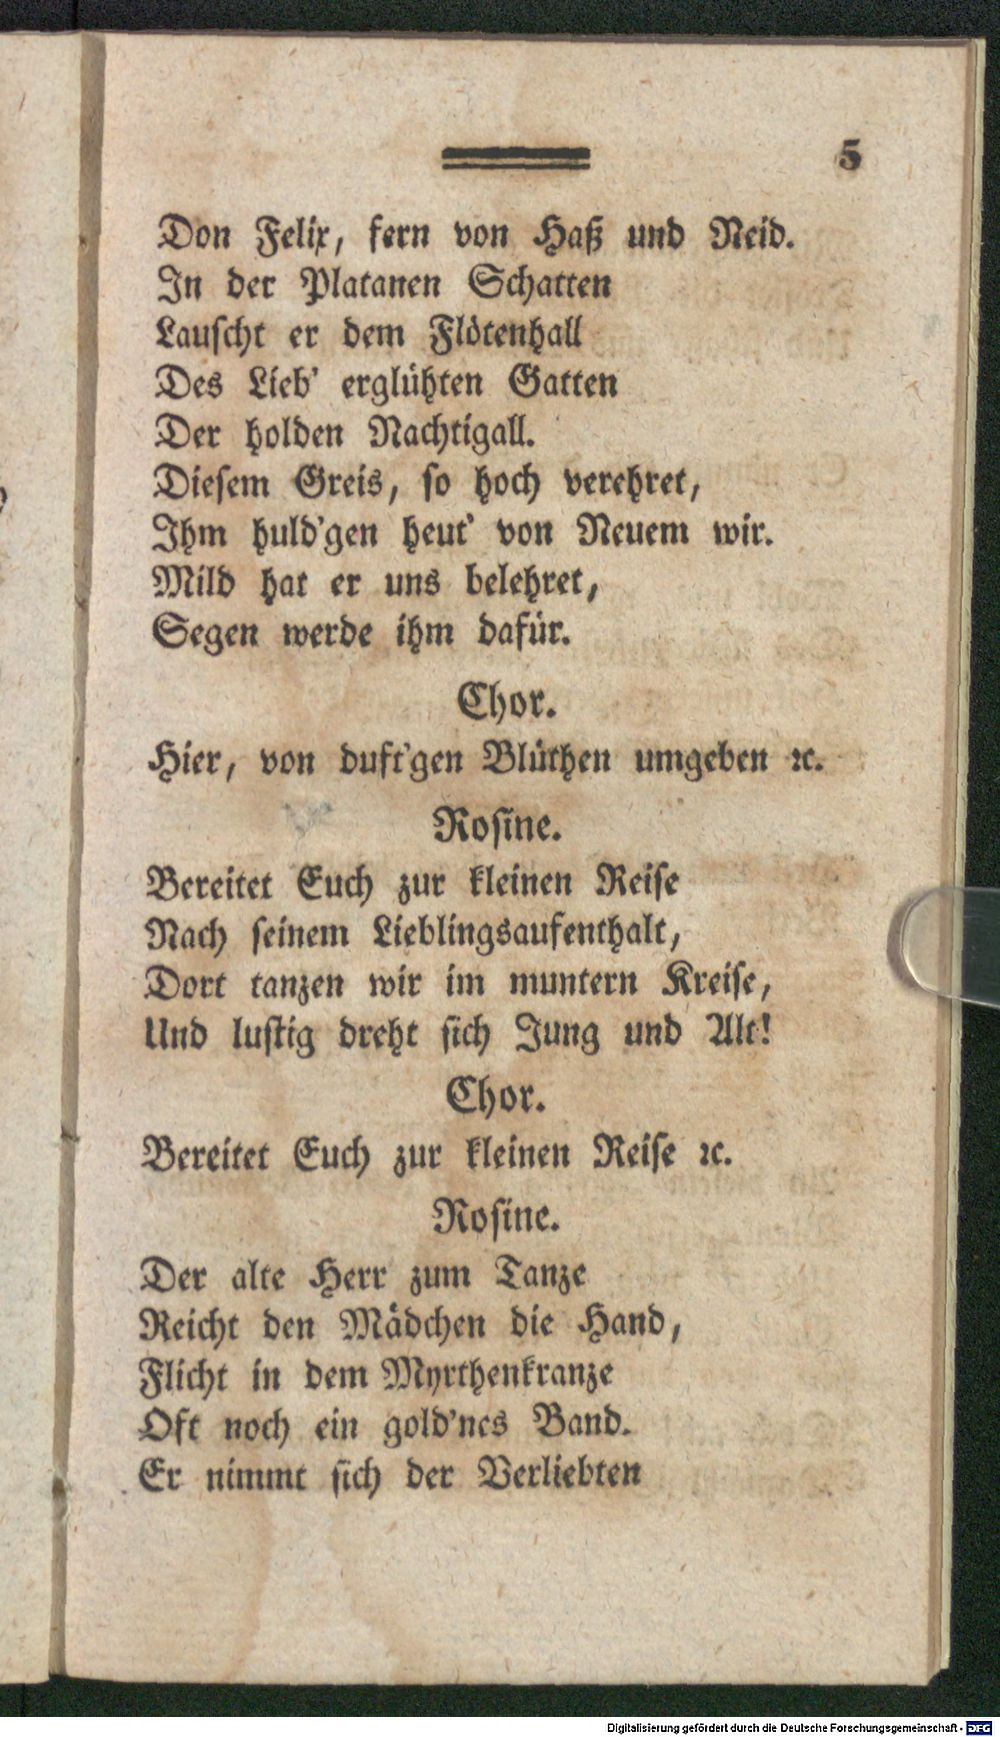 5
Don Felix, fern von Haß und Neid.
In der Platanen Schatten
Lauscht er dem Flötenhall
Des Lieb' erglühten Gatten
Der holden Nachtigall.
Diesem Greis, so hoch verehret,
Ihm huld'gen heut' von Neuem wir.
Mild hat er uns belehret,
Segen werde ihm dafür.
Chor.
Hier, von duft'gen Blüthen umgeben ꝛc.
Rosine.
Bereitet Euch zur kleinen Reise
Nach seinem Lieblingsaufenthalt,
Dort tanzen wir im muntern Kreise,
Und lustig dreht sich Jung und Alt!
Chor.
Bereitet Euch zur kleinen Reise ꝛc.
Rosine.
Der alte Herr zum Tanze
Reicht den Mädchen die Hand,
Flicht in dem Myrthenkranze
Oft noch ein gold'nes Band.
Er nimmt sich der Verliebten
Digitalisierung gefördert durch die Deutsche Forschungsgemeinschaft - DFG